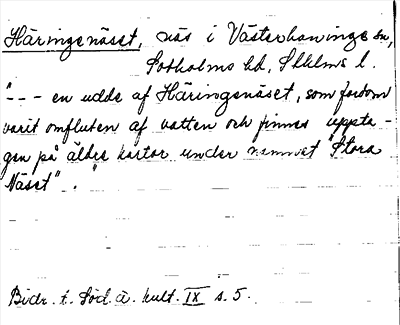 Häringenäset, näs i Västerhaninge sn,
Sotholms hd, Sthlms l.
"--- en udde af Häringenäset, som fordom
varit omfluten af vatten och finnes uppta-
gen på äldre kartor under namnet "Stora
Näset".
Bidr. t. Söd. ä. kult. IX s. 5.